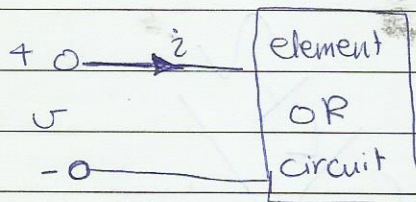 + i element
v OR
- circuit